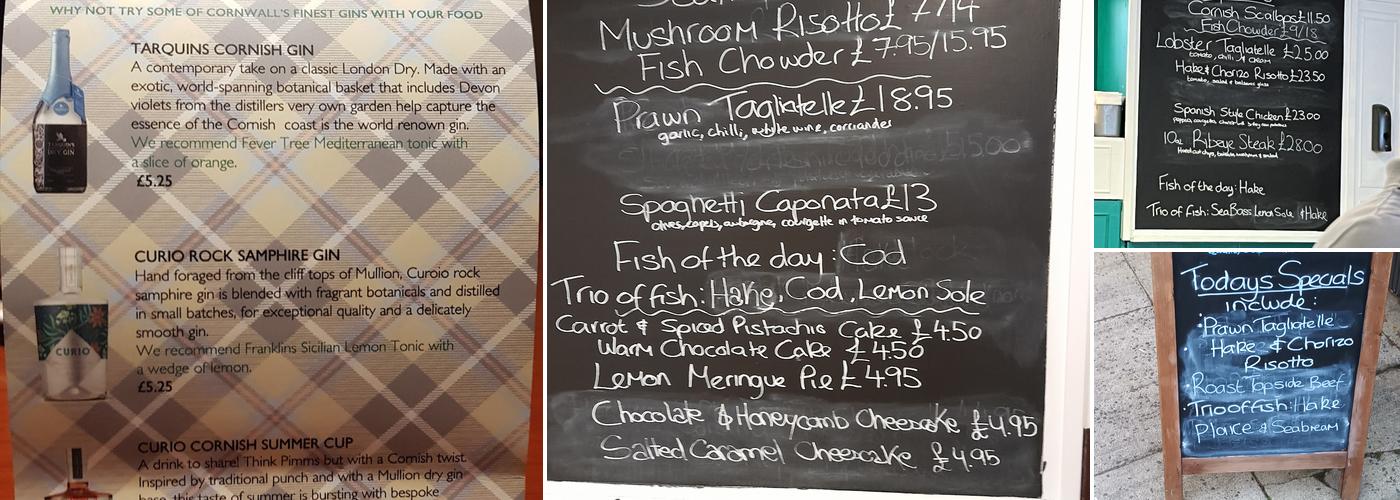 WHY NOT TRY SOME OF CORNWALL'S FINEST GINS WITH YOUR FOOD
TARQUINS CORNISH GIN
A contemporary take on a classic London Dry. Made with an
exotic, world-spanning botanical basket that includes Devon
violets from the distillers very own garden help capture the
essence of the Cornish coast is the world renown gin.
We recommend Fever Tree Mediterranean tonic with
a slice of orange.
£5.25
CURIO ROCK SAMPHIRE GIN
Hand foraged from the cliff tops of Mullion, Curoio rock
samphire gin is blended with fragrant botanicals and distilled
in small batches, for exceptional quality and a delicately
smooth gin.
We recommend Franklins Sicilian Lemon Tonic with
a wedge of lemon.
£5.25
CURIO
CURIO CORNISH SUMMER CUP
A drink to share! Think Pimms but with a Cornish twist.
Inspired by traditional punch and with a Mullion dry gin
base, this taste of summer is bursting with bespoke
Mushroom Risotto £7/14
Fish Chowder £7.95/15.95
Prawn Tagliatelle £18.95
garlic, chilli, white wine, corriander
Spaghetti Caponata £13
olives, capers, aubergine, courgette in tomato sauce
Fish of the day: Cod
Trio of fish: Hake, Cod, Lemon Sole
Carrot & Spiced Pistachio Cake £4.50
Warm Chocolate Cake £4.50
Lemon Meringue Pie £4.95
Chocolate & Honeycomb Cheesecake £4.95
Salted Caramel Cheesecake £4.95
Cornish Scallops £11.50
Fish Chowder £9/18
Lobster Tagliatelle £25.00
tomato, chilli & cream
Hake & Chorizo Risotto £23.50
Spanish Style Chicken £23.00
10oz Ribeye Steak £28.00
Fish of the day: Hake
Trio of fish: Sea Bass Lemon Sole & Hake
Todays Specials
include:
Prawn Tagliatelle
Hake & Chorizo
Risotto
Roast Topside Beef
Trio of fish: Hake
Plaice & Seabream